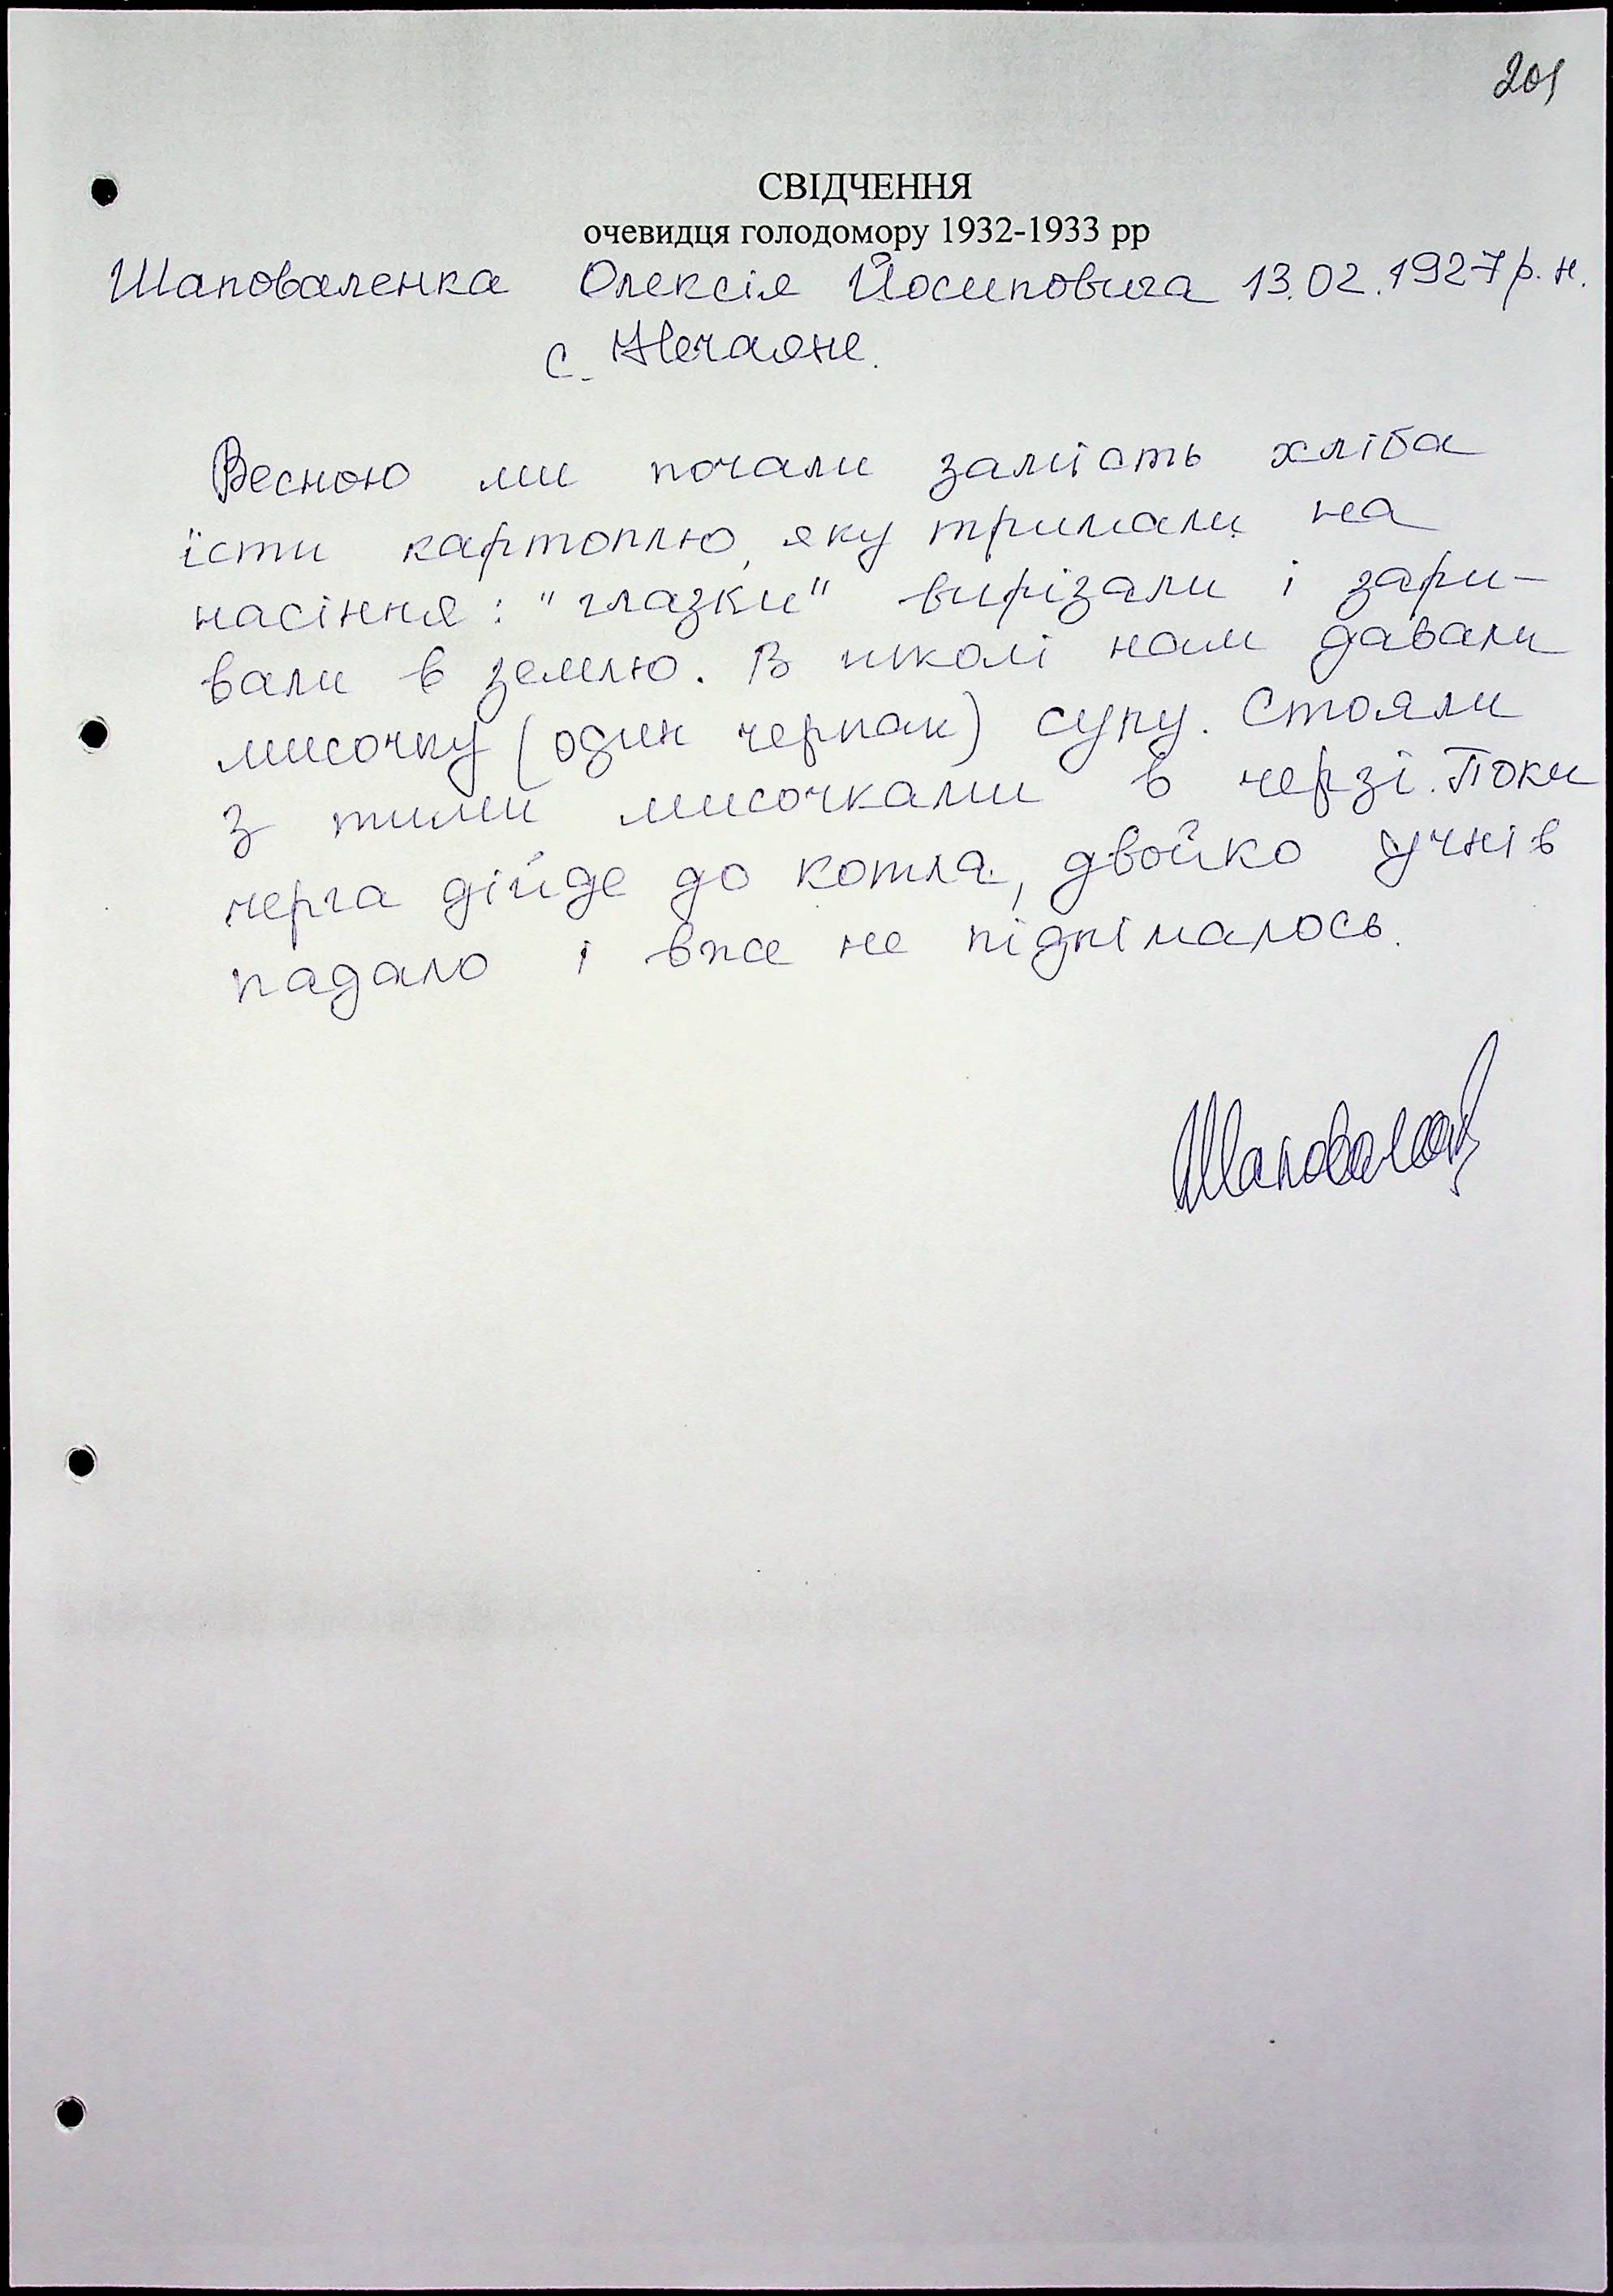 201
СВІДЧЕННЯ
очевидця голодомору 1932-1933 рр
Шаповаленка Олексія Йосиповича 13.02.1927 р.н.
с. Нечаяне.
Весною ми почали замість хліба
їсти картоплю, яку тримали на
насіння: "глазки" вирізали і зари-
вали в землю. В школі нам давали
мисочку (один черпак) супу. Стояли
з тими мисочками в черзі. Поки
черга дійде до котла, двойко учнів
падало і вже не піднімалось.